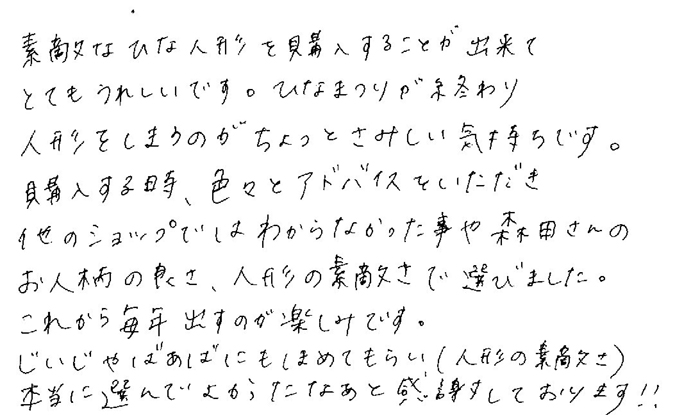 素敵なひな人形を購入することが出来て
とてもうれしいです。ひなまつりが終わり
人形をしまうのがちょっとさみしい気持ちです。
購入する時、色々とアドバイスをいただき
他のショップではわからなかった事や森田さんの
お人柄の良さ、人形の素敵さで選びました。
これから毎年出すのが楽しみです。
じいじやばあばにもほめてもらい(人形の素敵さ)
本当に選んでよかったなあと感謝しております!!